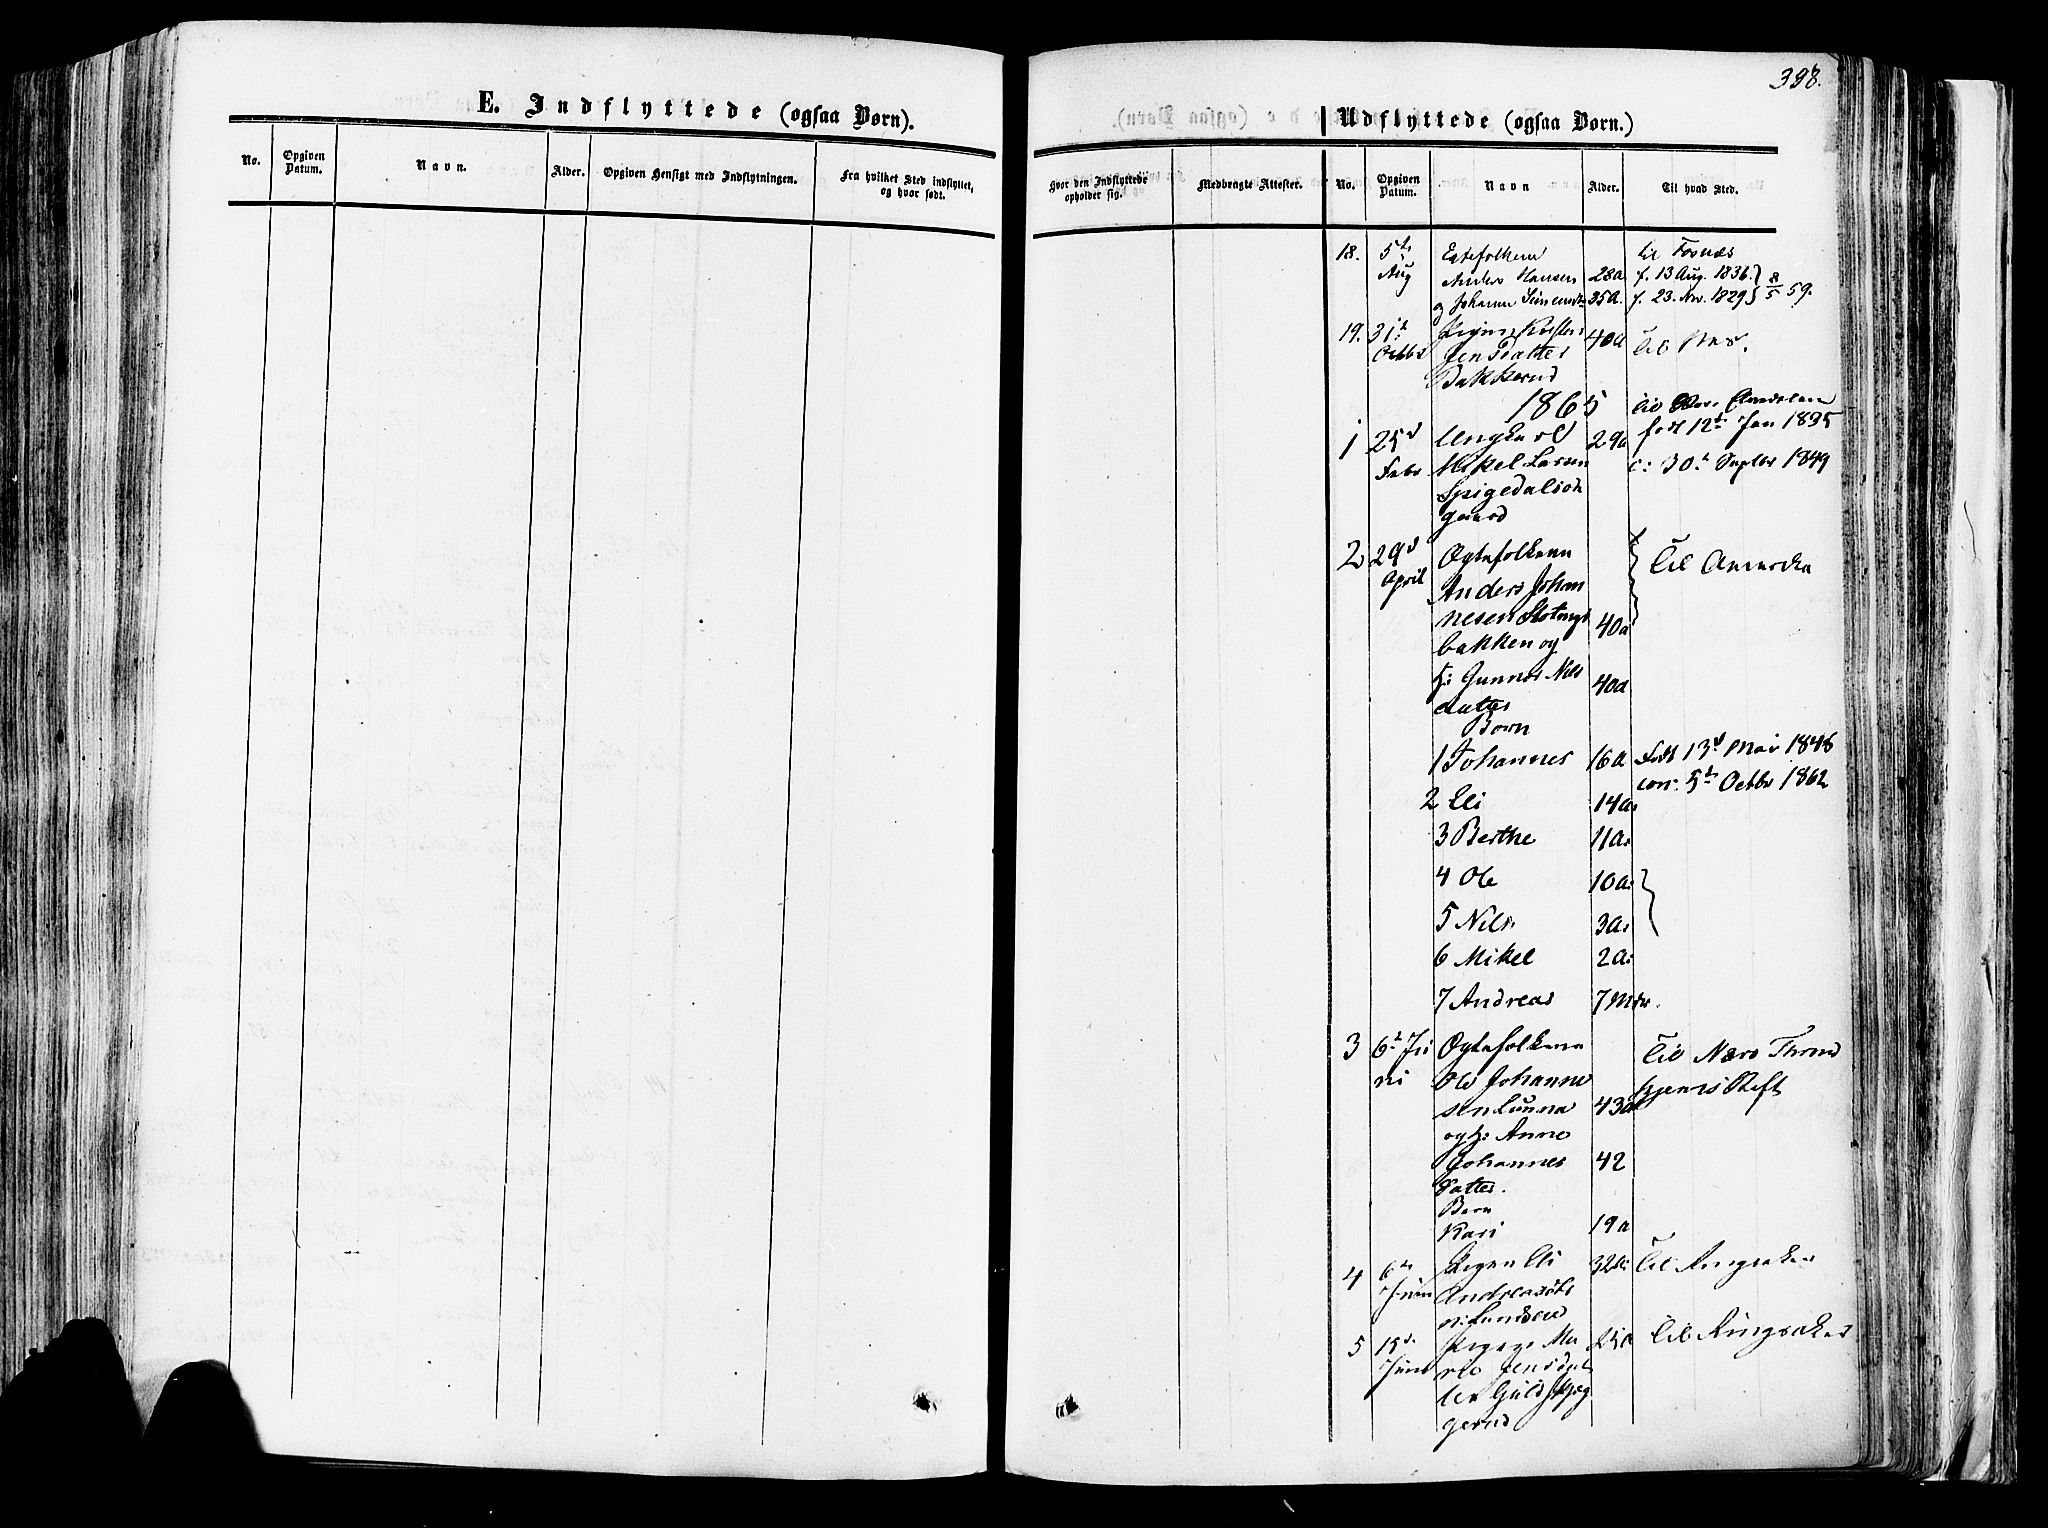 398.
E. Indflyttede (ogsaa Børn).
No.
Opgiven Datum.
Navn.
Alder.
Opgiven Hensigt med Indflytningen.
Fra hvilket Sted indflyttet, og hvor født.
Udflyttede (ogsaa Børn.)
Hvor den Indflyttede opholder sig.
Medbragte Attester.
No.
Opgiven Datum.
Navn
Alder.
Til hvad Sted.
18. 5te Egtefolkene til Fosnæs
Aug Anders Hansen 28a f. 13 Aug. 1836.
og Johanne 35a. f. 23. Nov. 1829 8/5 59.
19. 31te
Octbr Jens Datter 40a til Næs.
Bakkerud
1865
1 25d Ungkarl 29a født 12te Jan 1835
Febr Mikel Larsen c: 30te Septbr 1849
gaard
2 29d Ægtefolkene Til Amerika
April Anders Johan
nesen 40a
bakken og
h: Gunnor Nils 40a
datter
Børn
1 Johannes 16a Født 13d Mai 1848
con: 5te Octbr 1862
2 Eli 14a
3 Berthe 11a.
4 Ole 10a.
5 Nils 3a.
6 Mikel 2a.
7 Andreas 7 Mdr.
3 6te Ju Ægtefolkene Til Nærø Thrond
ni Ole Johanne hjems Stift
sen Lunna 43a
og h: Anne
Johannes 42
Datter.
Barn
Kari 19a
4 6te Pigen Eli 32a Til Ringsaker
Juni Andreasdtr
5 15d. Pige Ma 25a Til Ringsaker
Juni rie Jensdat
ter
gerud